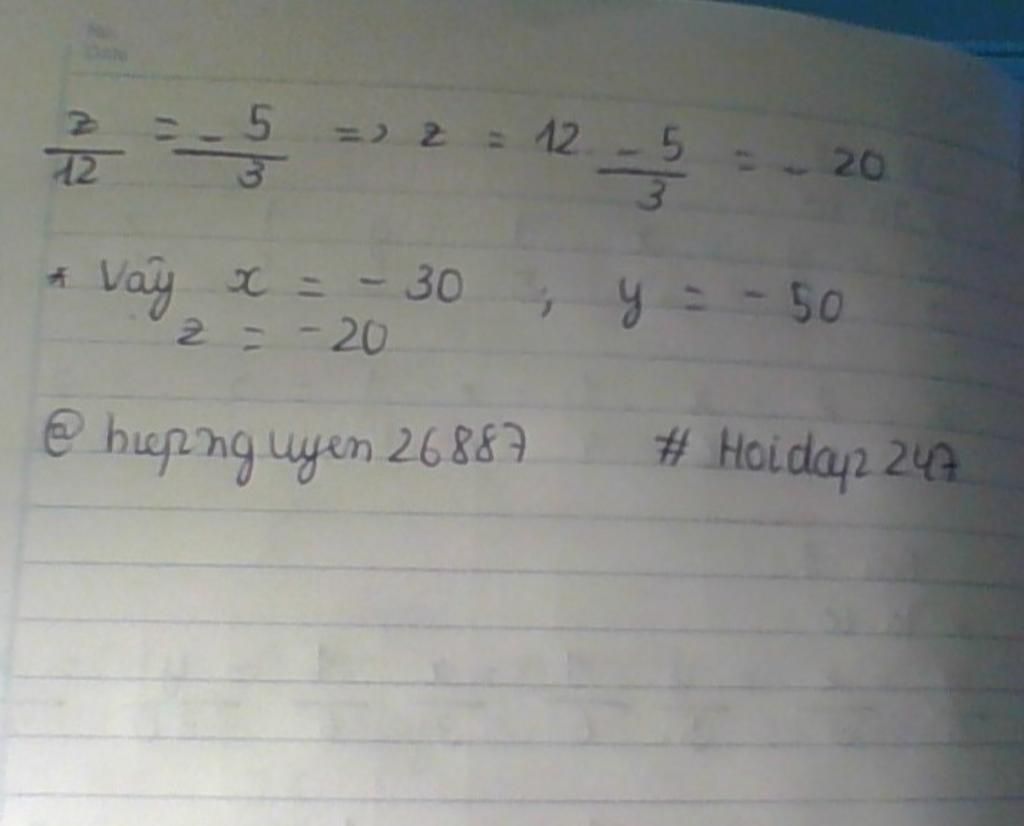 No.
Date
z/12 = -5/3 => z = 12 . -5/3 = - 20
* Vậy x = - 30 ; y = - 50
z = - 20
@ hiepnguyen26887 # Hoidap247